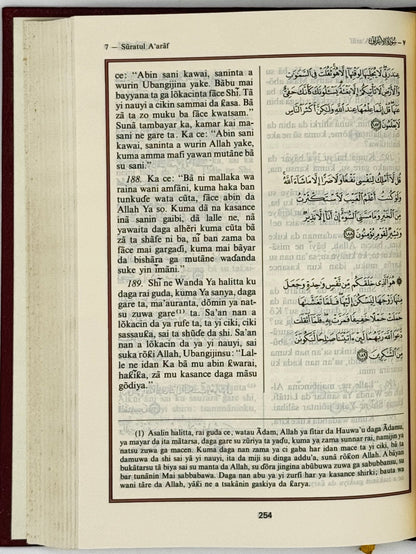 7 — Sūratul A'arāf
٧ — سُورَةُ الأَعْرَافِ
ce: "Abin sani kawai, saninta a
wurin Ubangijina yake. Bābu mai
bayyana ta ga lōkacinta fāce Shī. Tā
yi nauyi a cikin sammai da ƙasa. Bā
zā ta zo muku ba fāce kwatsam."
Sunā tambayar ka, kamar kai ma-
sani ne gare ta. Ka ce: "Abin sani
kawai, saninta a wurin Allah yake,
kuma amma mafi yawan mutāne bā
su sani."
188. Ka ce: "Bā ni mallaka wa
raina wani amfāni, kuma haka ban
tunkuɗe wata cūta, fāce abin da
Allah Ya so. Kuma dā na kasance
inā sanin gaibi, dā lalle ne, nā
yawaita daga alhēri kuma cūta bā
zā ta shāfe ni ba, nī ban zama ba
fāce mai gargadi, kuma mai bāyar
da bishāra ga mutāne waɗanda
suke yin īmāni."
189. Shī ne Wanda Ya halitta ku
daga rai guda, kuma Ya sanya, daga
gare ta, ma'auranta, dōmin ya nat-
su zuwa gare⁽¹⁾ ta. Sa'an nan a
lōkacin da ya rufe ta, ta yi ciki, ciki
sassauƙa, sai ta shūɗe da shi. Sa'an
nan a lōkacin da ta yi nauyi, sai
suka rōƙi Allah, Ubangijinsu: "Lal-
le ne idan Ka bā mu abin ƙwarai,
haƙīƙa, zā mu kasance daga māsu
gōdiya."
عِندَ رَبِّي لَا يُجَلِّيهَا لِوَقْتِهَا إِلَّا هُوَ ثَقُلَتْ فِي السَّمَٰوَٰتِ
وَالْأَرْضِ لَا تَأْتِيكُمْ إِلَّا بَغْتَةً يَسْـَٔلُونَكَ كَأَنَّكَ حَفِيٌّ
عَنْهَا قُلْ إِنَّمَا عِلْمُهَا عِندَ اللَّهِ وَلَٰكِنَّ أَكْثَرَ النَّاسِ
لَا يَعْلَمُونَ ١٨٧
قُل لَّا أَمْلِكُ لِنَفْسِي نَفْعًا وَلَا ضَرًّا إِلَّا مَا شَاءَ اللَّهُ
وَلَوْ كُنتُ أَعْلَمُ الْغَيْبَ لَاسْتَكْثَرْتُ
مِنَ الْخَيْرِ وَمَا مَسَّنِيَ السُّوءُ إِنْ أَنَا إِلَّا نَذِيرٌ
وَبَشِيرٌ لِّقَوْمٍ يُؤْمِنُونَ ١٨٨
هُوَ الَّذِي خَلَقَكُم مِّن نَّفْسٍ وَٰحِدَةٍ وَجَعَلَ
مِنْهَا زَوْجَهَا لِيَسْكُنَ إِلَيْهَا فَلَمَّا تَغَشَّىٰهَا
حَمَلَتْ حَمْلًا خَفِيفًا فَمَرَّتْ بِهِ فَلَمَّا أَثْقَلَت
دَّعَوَا اللَّهَ رَبَّهُمَا لَئِنْ ءَاتَيْتَنَا صَٰلِحًا لَّنَكُونَنَّ
مِنَ الشَّٰكِرِينَ ١٨٩
(1) Asalin halitta, rai guda ce, watau Ādam, Allah ya fitar da Hauwa'u daga Ādamu,
ya mayar da ita mātarsa, daga gare su zūriya ta yaɗu, kuma ya zama sunnar rai, namijin ya
natsu zuwa ga macen. Kuma daga nan zama ya ci gaba har idan mace ta yi ciki, bā ta
damuwa da shi sai yā yi nauyi, ita da miji su dinga addu'a, sunā rōƙon Allah. Abūyan
bukātarsu tā biya sai su manta da Allah, su dōra jingina abūbuwa zuwa ga sabubbansu, su
bar tunānin Mai sabbabawa. Daga nan abu ya yi zurfi har ya kasance shirki; bauta wa
wani tāre da Allah, yāƙi ne a tsakānin gaskiya da ƙarya.
254